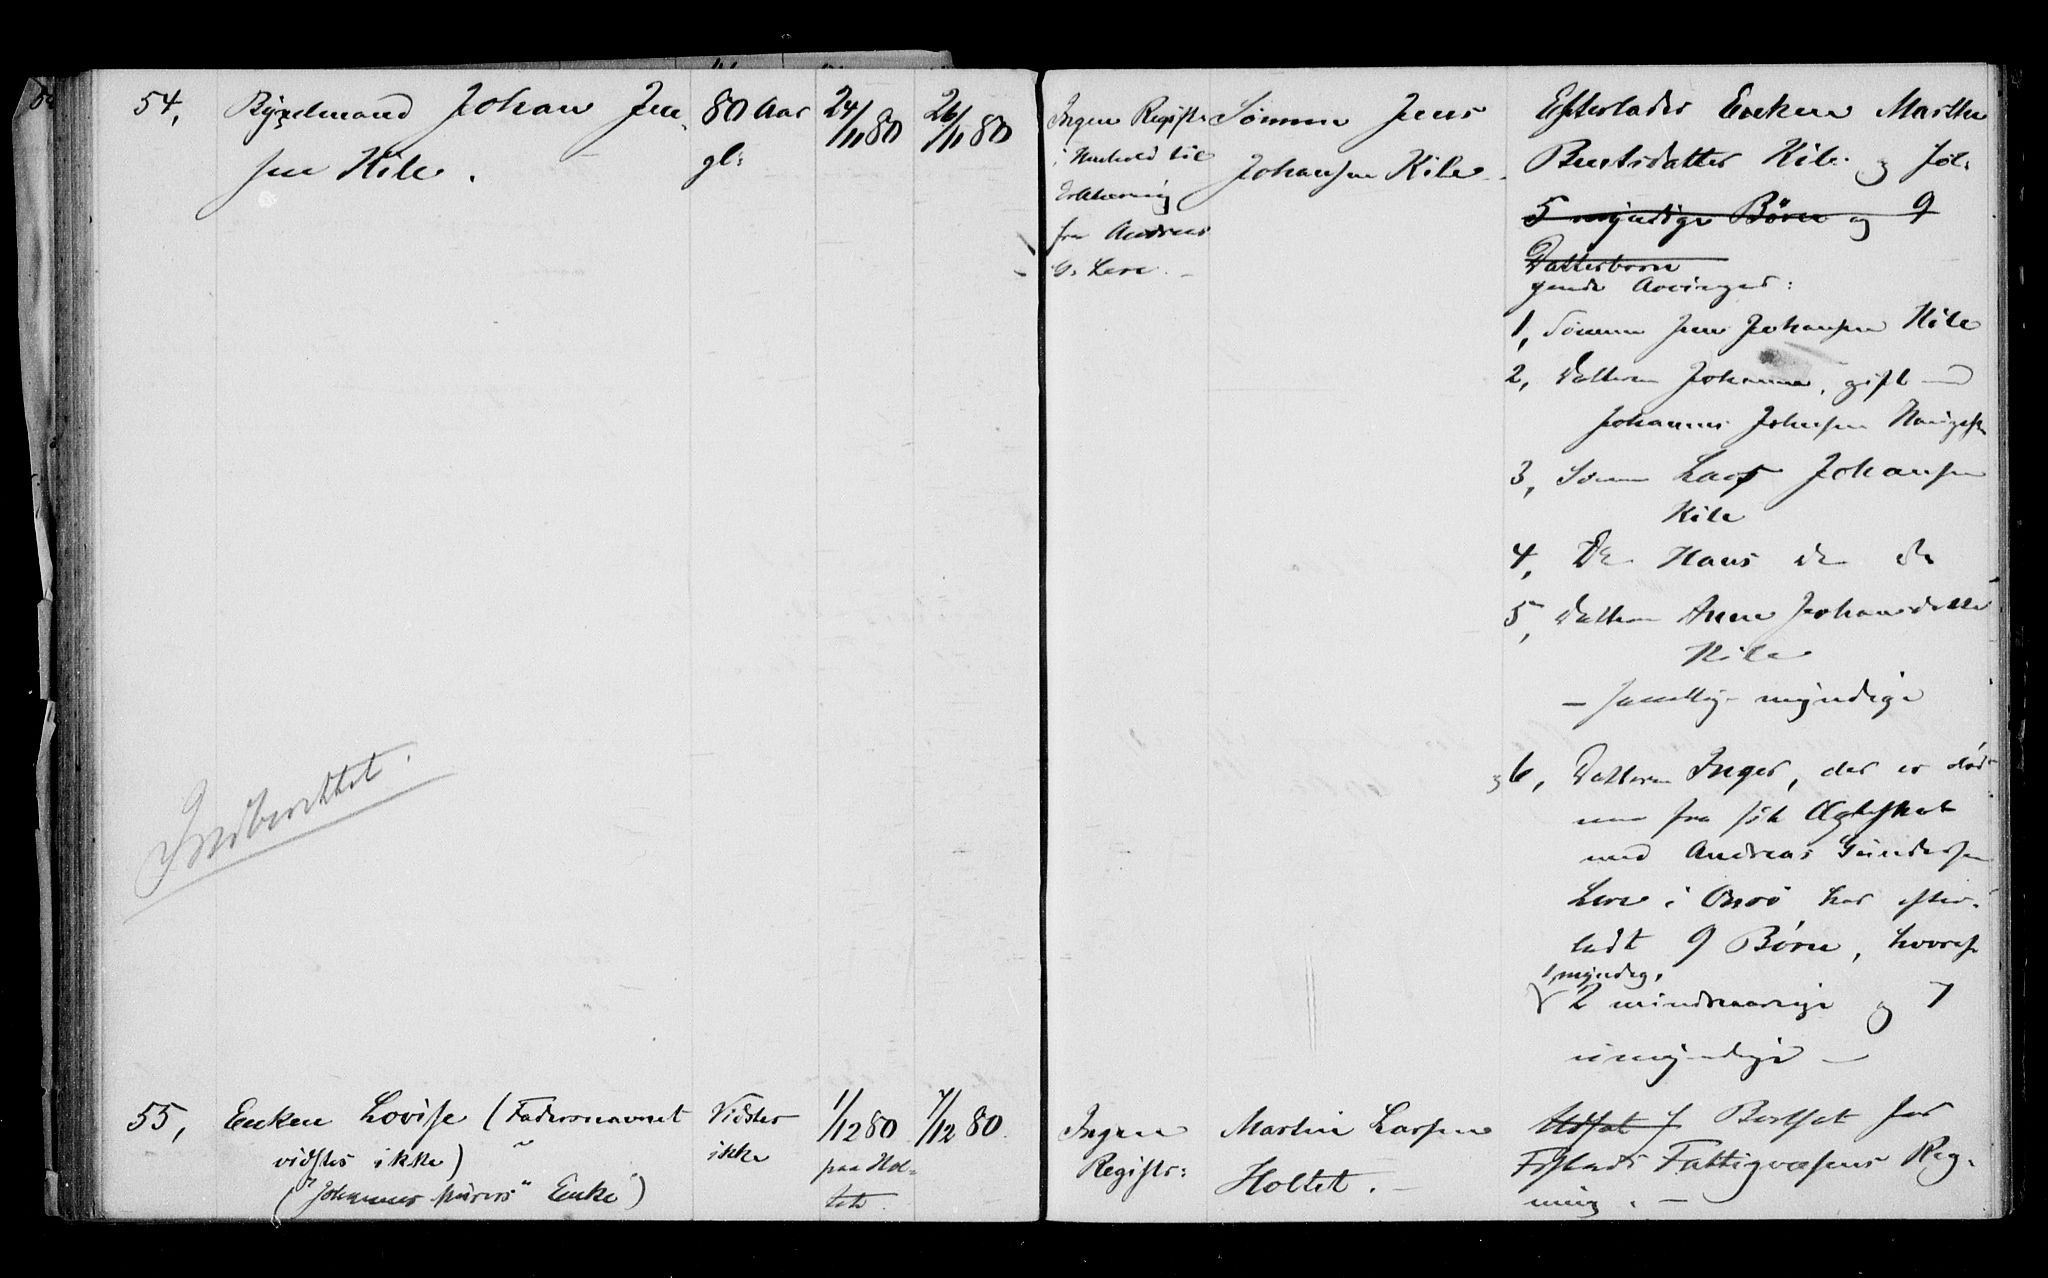 54,
Bygselmand Johan Jen-
sen Kile.
80 Aar
gl:
24/11 80
26/11 80
Ingen Registr.
i Henhold til
Erklæring
fra Andreas
G. Lere. -
Sønnen Jens
Johansen Kile. -
Efterlader Enken Marthe
Berntsdatter Kile og føl-
5 myndige Børn og 9
Datterbørn
gende Arvinger:
1, Sønnen Jens Johansen Kile
2, Datteren Johanne, gift med
Johannes Johnsen
3, Sønnen Lars Johansen
Kile
4, Do Hans do do
5, Datteren Anne Johansdatter
Kile
- samtlig myndige
og 6, Datteren Inger, der er død
men fra sit Ægteskab
med Andreas Gundersen
Lere i Onsø, har efter-
ladt 9 Børn, hvoraf
1 myndig,
2 mindreaarige og 7
umyndige -
Indberettet.
55,
Enken Lovise (Fadersnavnet
vidstes ikke)
("Johannes Murers" Enke)
Vidstes
ikke
1/12 80
paa Hol-
tet.
7/12 80.
Ingen
Registr:
Martin Larsen
Holtet. -
Udsat f Bortsat for
Fattigvæsens Reg-
ning. -